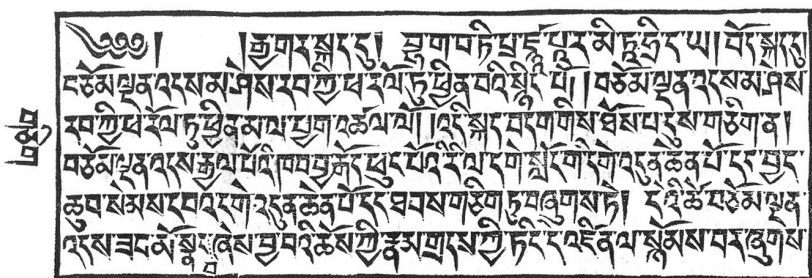 ༄༅༅། །རྒྱ་གར་སྐད་དུ། བྷ་ག་བ་ཏི་པྲཛྙཱ་པཱ་ར་མི་ཏཱ་ཧྲི་ད་ཡ། བོད་སྐད་དུ
བཅོམ་ལྡན་འདས་མ་ཤེས་རབ་ཀྱི་ཕ་རོལ་ཏུ་ཕྱིན་པའི་སྙིང་པོ། །བཅོམ་ལྡན་འདས་མ་ཤེས
རབ་ཀྱི་ཕ་རོལ་ཏུ་ཕྱིན་མ་ལ་ཕྱག་འཚལ་ལོ། །འདི་སྐད་བདག་གིས་ཐོས་པ་དུས་གཅིག་ན།
བཅོམ་ལྡན་འདས་རྒྱལ་པོའི་ཁབ་བྱ་རྒོད་ཕུང་པོའི་རི་ལ་དགེ་སློང་གི་དགེ་འདུན་ཆེན་པོ་དང་བྱང
ཆུབ་སེམས་དཔའི་དགེ་འདུན་ཆེན་པོ་དང་ཐབས་གཅིག་ཏུ་བཞུགས་ཏེ། དེའི་ཚེ་བཅོམ་ལྡན
འདས་ཟབ་མོ་སྣང་བ་ཞེས་བྱ་བའི་ཆོས་ཀྱི་རྣམ་གྲངས་ཀྱི་ཏིང་ངེ་འཛིན་ལ་སྙོམས་པར་ཞུགས